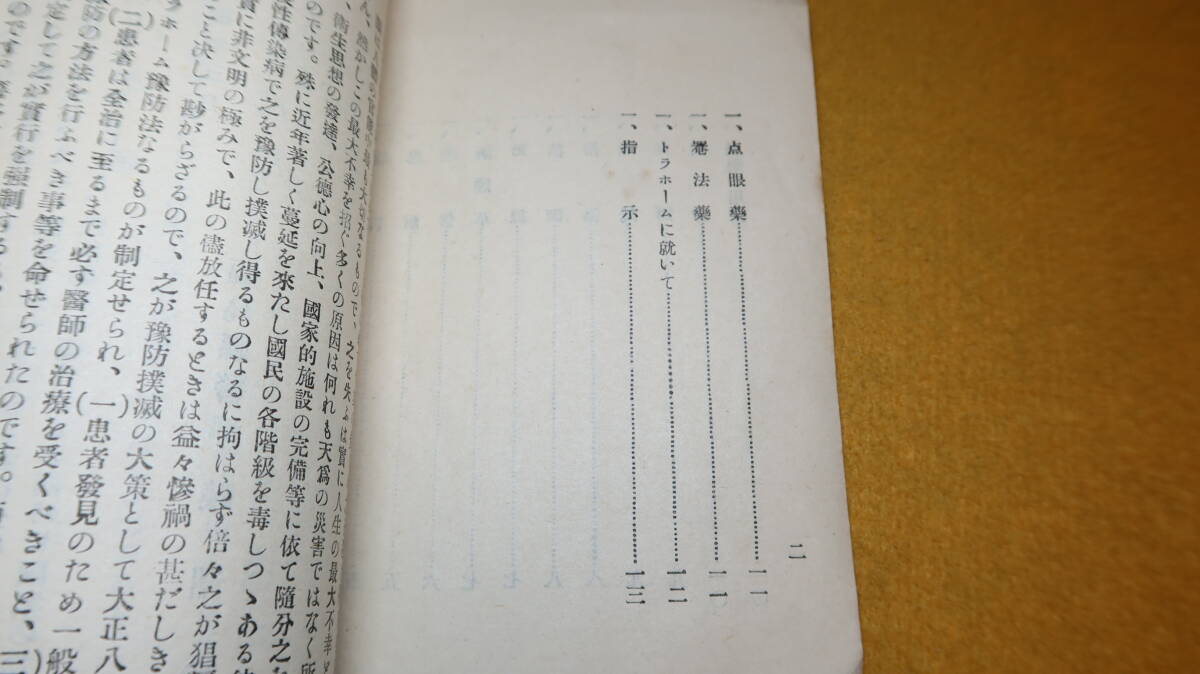 一、点眼藥……一一
一、罨法藥……一一
一、トラホームに就いて……一二
一、指示……一三
二
ん、然かしこの最大不幸を招ぐ多くの原因は何れも天爲の災害ではなく所
、衞生思想の發達、公德心の向上、國家的施設の完備等に依て隨分之
のです。殊に近年著しく蔓延を來たし國民の各階級を毒しつゝある
性傳染病で之を豫防し撲滅し得るものなるに拘はらず倍々之が猖
に非文明の極みで、此の儘放任するときは益々慘禍の甚だしき
こと決して尠がらざるので、之が豫防撲滅の大策として大正八
ラホーム豫防法なるものが制定せられ、(一患者發見のため一般
(二患者は全治に至るまで必す醫師の治療を受くべきこと、(三
防の方法を行ふべき事等を命せられたのです。
定して之が實行を强制する
のです